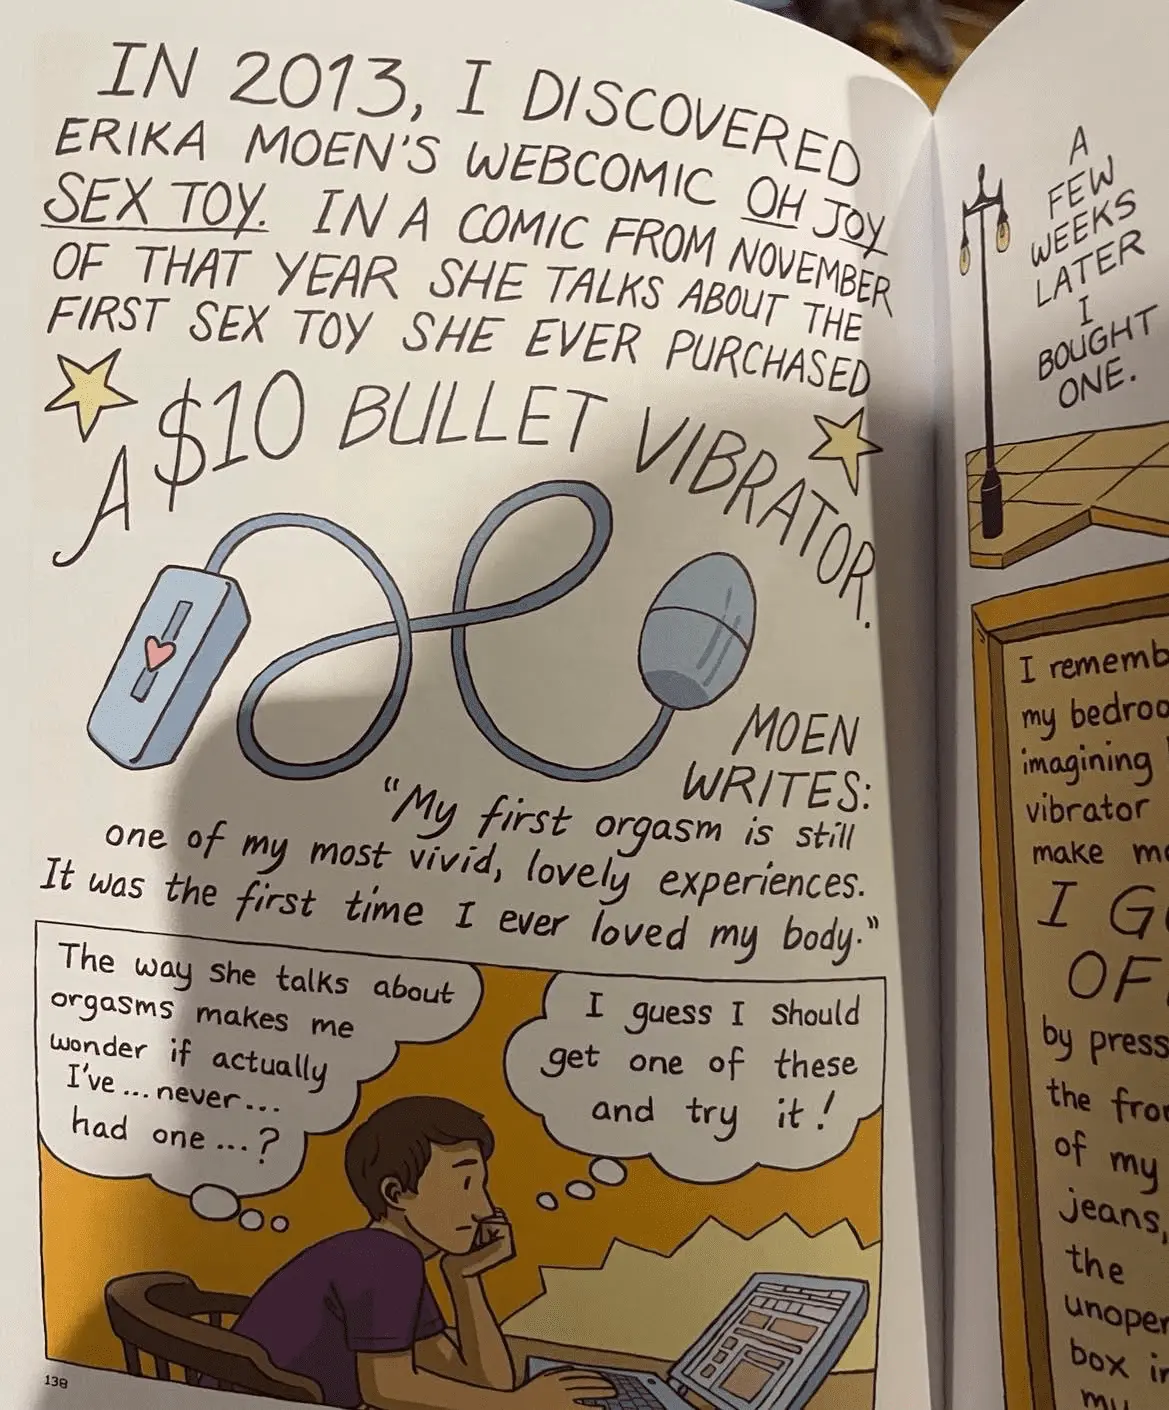 IN 2013, I DISCOVERED
ERIKA MOEN'S WEBCOMIC OH JOY
SEX TOY. IN A COMIC FROM NOVEMBER
OF THAT YEAR SHE TALKS ABOUT THE
FIRST SEX TOY SHE EVER PURCHASED
A $10 BULLET VIBRATOR.
MOEN
WRITES:
"My first orgasm is still
one of my most vivid, lovely experiences.
It was the first time I ever loved my body."
The way she talks about
orgasms makes me
wonder if actually
I've ... never ...
had one ... ?
I guess I should
get one of these
and try it!
138
A
FEW
WEEKS
LATER
I
BOUGHT
ONE.
I
my
imagining
vibrator
make
I
OF
by
the
of my
jeans,
the
box
my